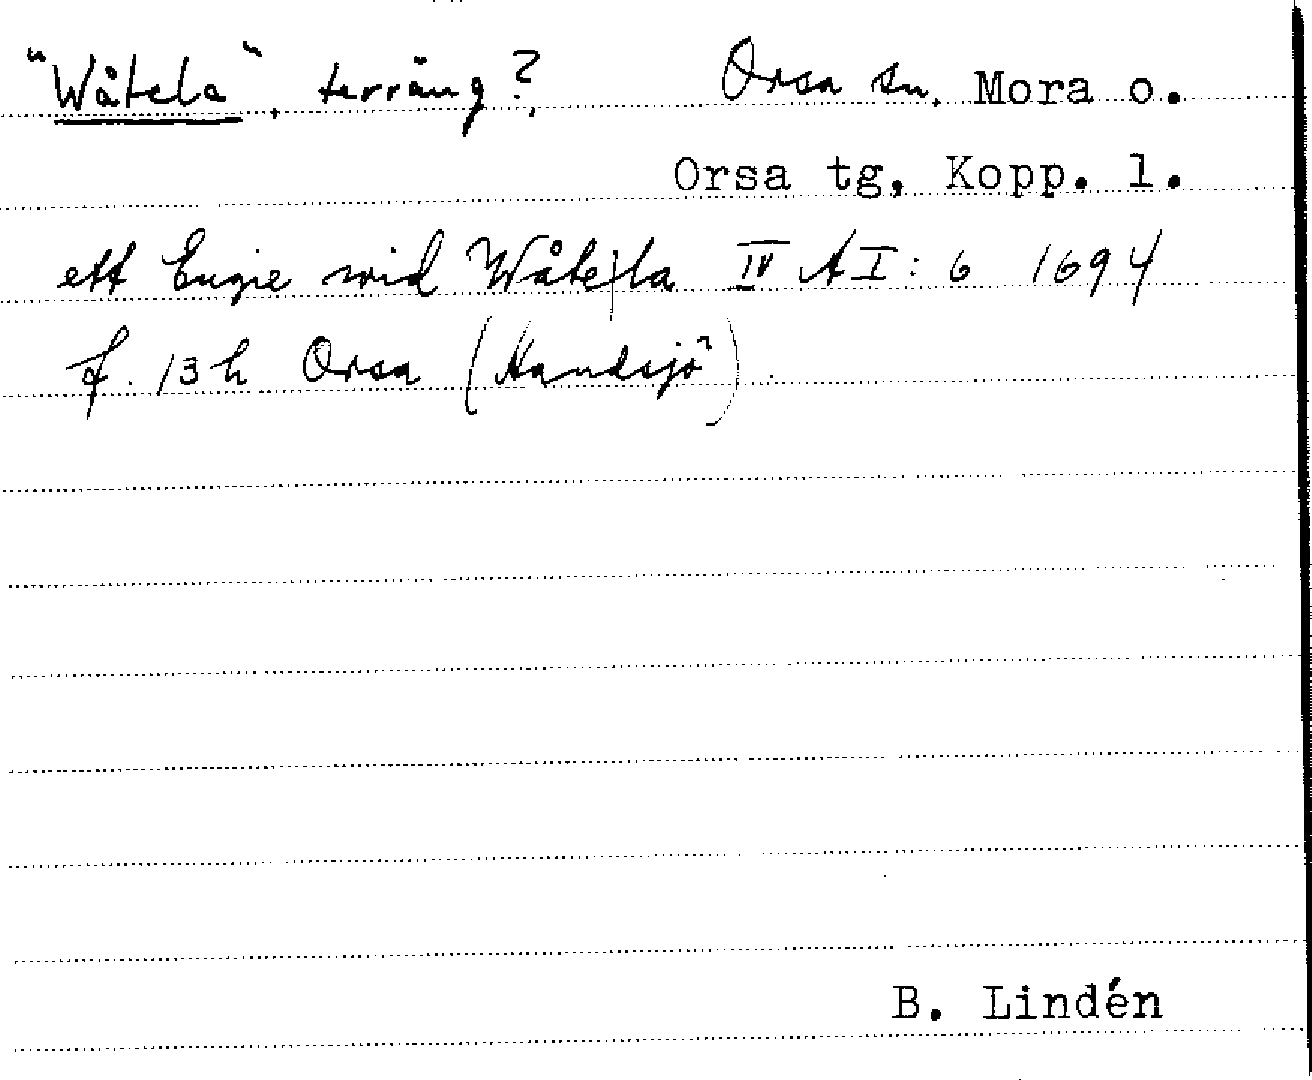 "Wåtela", terräng? Orsa sn. Mora o.
Orsa tg. Kopp. l.
ett Engie wid Wåte|la IV A I: 6 1694
f. 13 h Orsa (Handsjö)
B. Lindén